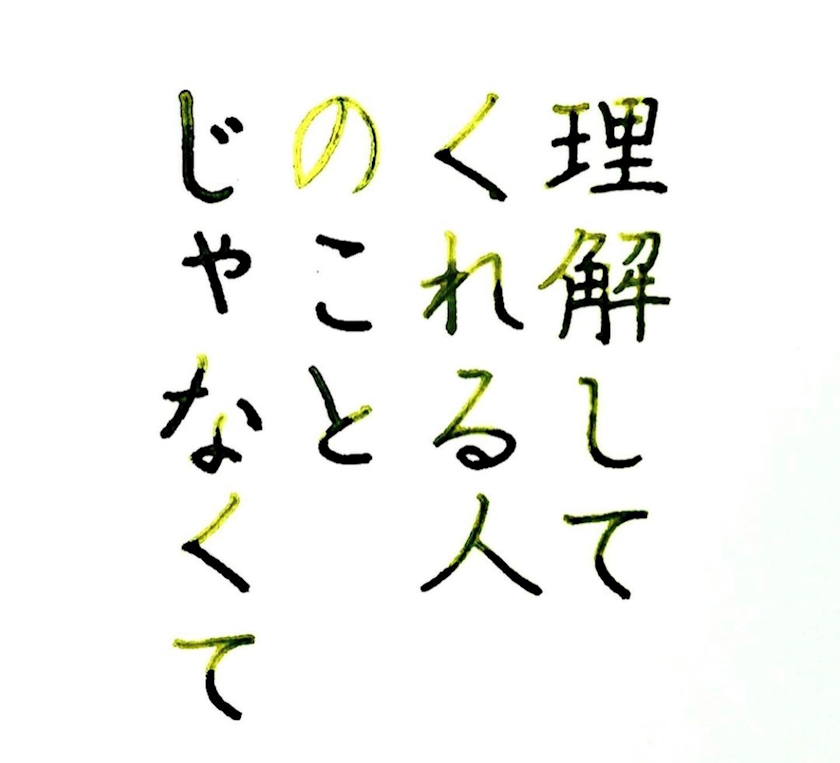 理解して
くれる人
のこと
じゃなくて